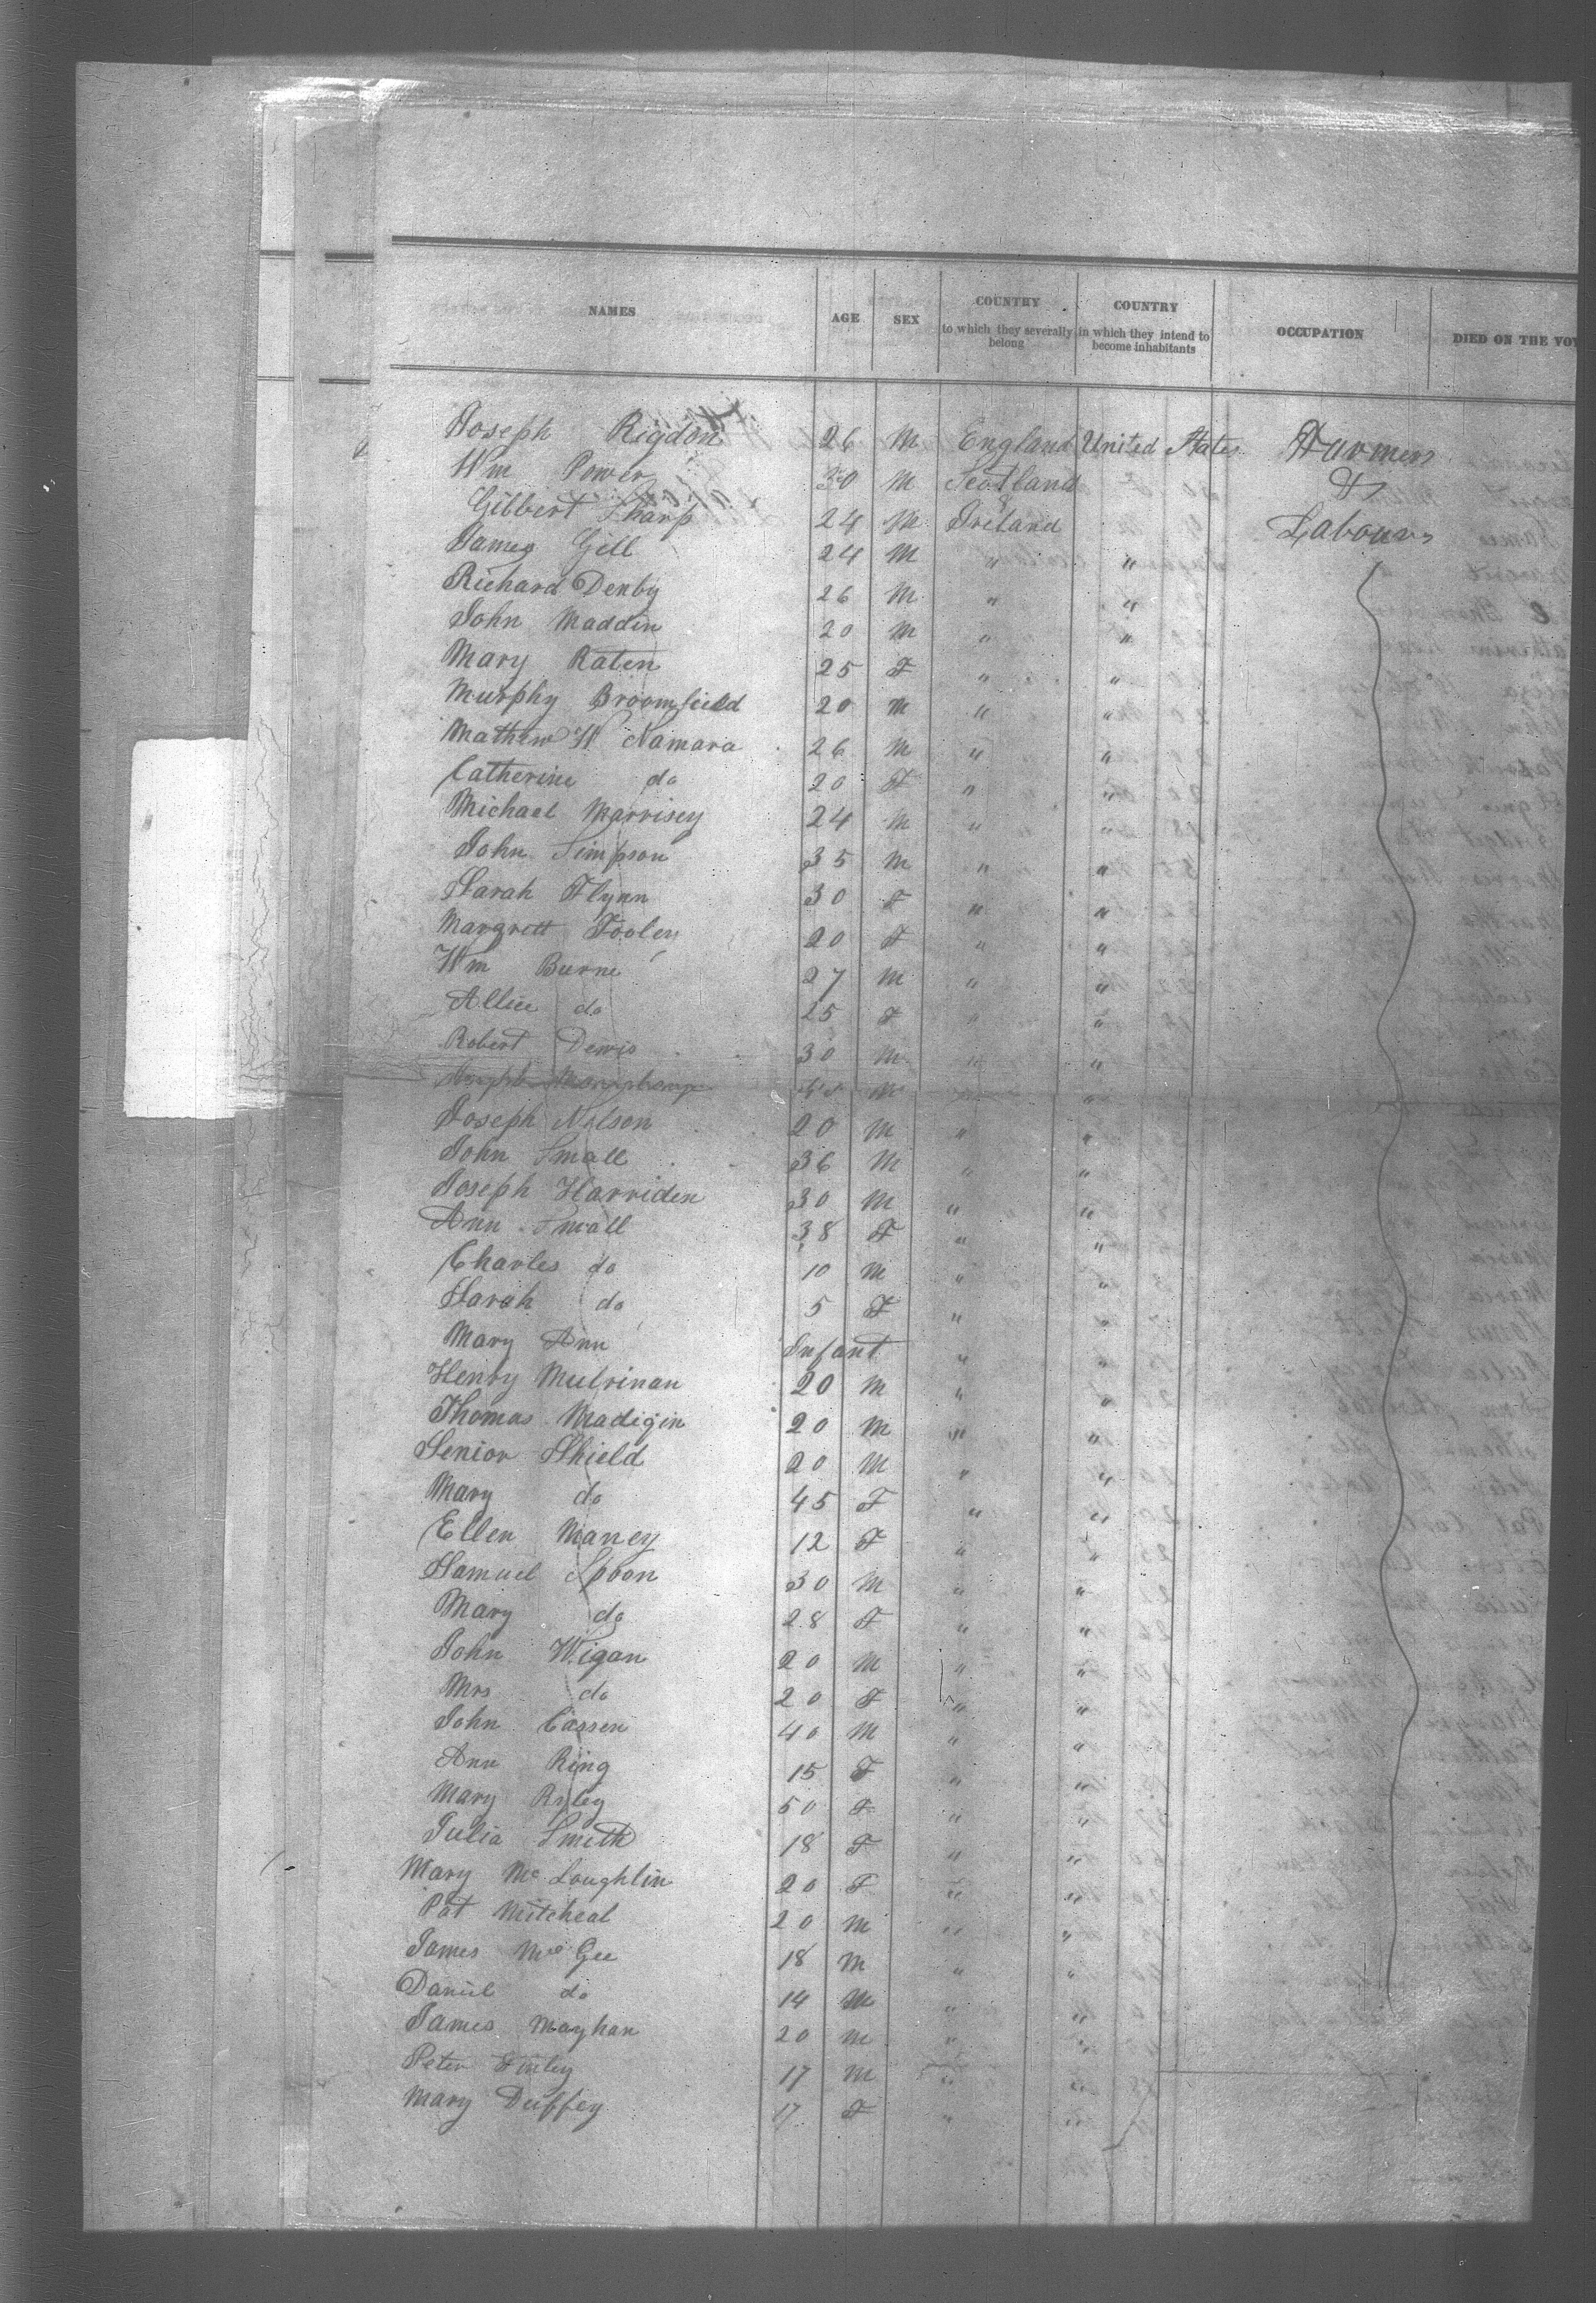 NAMES AGE SEX COUNTRY to which they severally belong COUNTRY in which they intend to become inhabitants OCCUPATION DIED ON THE VOY
Joseph Rigdon 26 M England United States Farmers
Wm Power 30 M Scotland &
Gilbert Sharp 24 M Ireland Labours
James Gill 24 M " "
Richard Denby 26 M " "
John Maddin 20 M " "
Mary Katen 25 F " "
Murphy Broomfield 20 M " "
Mathew Namara 26 M " "
Catherine do 20 F " "
Michael Marrisey 24 M " "
John Simpson 35 M " "
Sarah Flynn 30 F " "
Margrett Fooley 20 F " "
Wm Burne 27 M " "
Allice do 25 F " "
Robert Dewis 30 M " "
M "
Joseph Nelson 20 M " "
John Small 36 M " "
Joseph Harriden 30 M " "
Ann Small 38 F " "
Charles do 10 M " "
Sarah do 5 F " "
Mary Ann Infant " "
Henry Mulrinan 20 M " "
Thomas Madigin 20 M " "
Senior Shield 20 M " "
Mary do 45 F " "
Ellen Maney 12 F " "
Samuel Spoon 30 M " "
Mary do 28 F " "
John Wigan 20 M " "
Mrs do 20 F " "
John Cassen 40 M " "
Ann Ring 15 F " "
Mary Ryley 50 F " "
Julia Smith 18 F " "
Mary Mc Loughlin 20 F " "
Pat Mitcheal 20 M " "
James Mc Gee 18 M " "
Daniel do 14 M " "
James Mayhan 20 M " "
Peter Finley 17 M " "
Mary Duffey 17 F " "